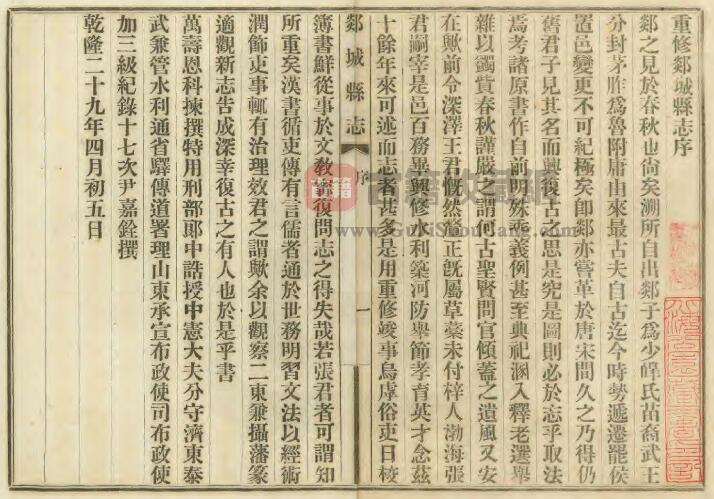 重修郯城縣志序
郯之見於春秋也尙矣溯所自出郯子為少皥氏苗裔武王
分封茅胙為魯附庸由來最古夫自古迄今時勢遞遷罷侯
置邑變更不可紀極矣卽郯亦嘗革於唐宋間久之乃得仍
舊君子見其名而興復古之思是究是圖則必於志乎取法
焉考諸原書作自前明殊乖義例甚至典祀溷入釋老選舉
雜以蠲貲春秋謹嚴之謂何古聖賢問官傾蓋之遺風又安
在歟前令深澤王君慨然釐正旣屬草藁未付梓人渤海張
君嗣宰是邑百務畢興修水利築河防舉節孝育英才念茲
十餘年來可述而志者甚多是用重修竣事烏虖俗吏日棱
郯城縣志 序 一
簿書鮮從事於文敎甯復問志之得失哉若張君者可謂知
所重矣漢書循吏傳有言儒者通於世務明習文法以經術
潤飾吏事輒有治理效君之謂歟余以觀察二東兼攝藩篆
適觀新志告成深幸復古之有人也於是乎書
萬壽恩科揀撰特用刑部郎中誥授中憲大夫分守濟東泰
武兼管水利通省驛傳道署理山東承宣布政使司布政使
加三級紀錄十七次尹嘉銓撰
乾隆二十九年四月初五日
古籍 古籍收藏網
www.GuJiShouCang.com